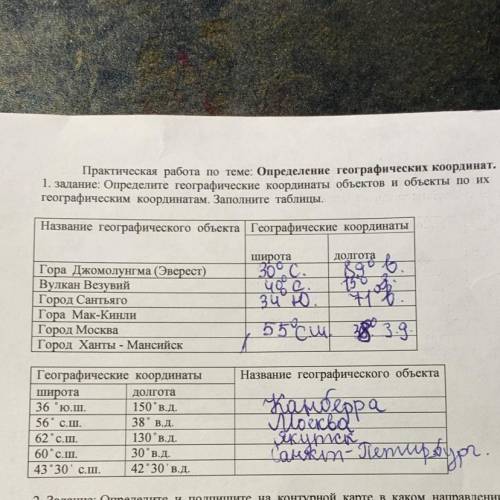 Практическая работа по теме: Определение географических координат.
1. задание: Определите географические координаты объектов и объекты по их
географическим координатам. Заполните таблицы.
Название географического объекта Географические координаты
широта долгота
Гора Джомолунгма (Эверест) 30° С. 89° в.
Вулкан Везувий с. 15°
Город Сантьяго 34 Ю. 71 в.
Гора Мак-Кинли
Город Москва 55° С.ш. 3.д.
Город Ханты - Мансийск
Географические координаты Название географического объекта
широта долгота
36 °ю.ш. 150°в.д. Канберра
56° с.ш. 38° в.д. Москва
62°с.ш. 130°в.д. Якутск
60°с.ш. 30°в.д. Санкт-Петирбург.
43°30' с.ш. 42°30' в.д.
2. Задание: Определите и подпишите на контурной карте в каком направлени